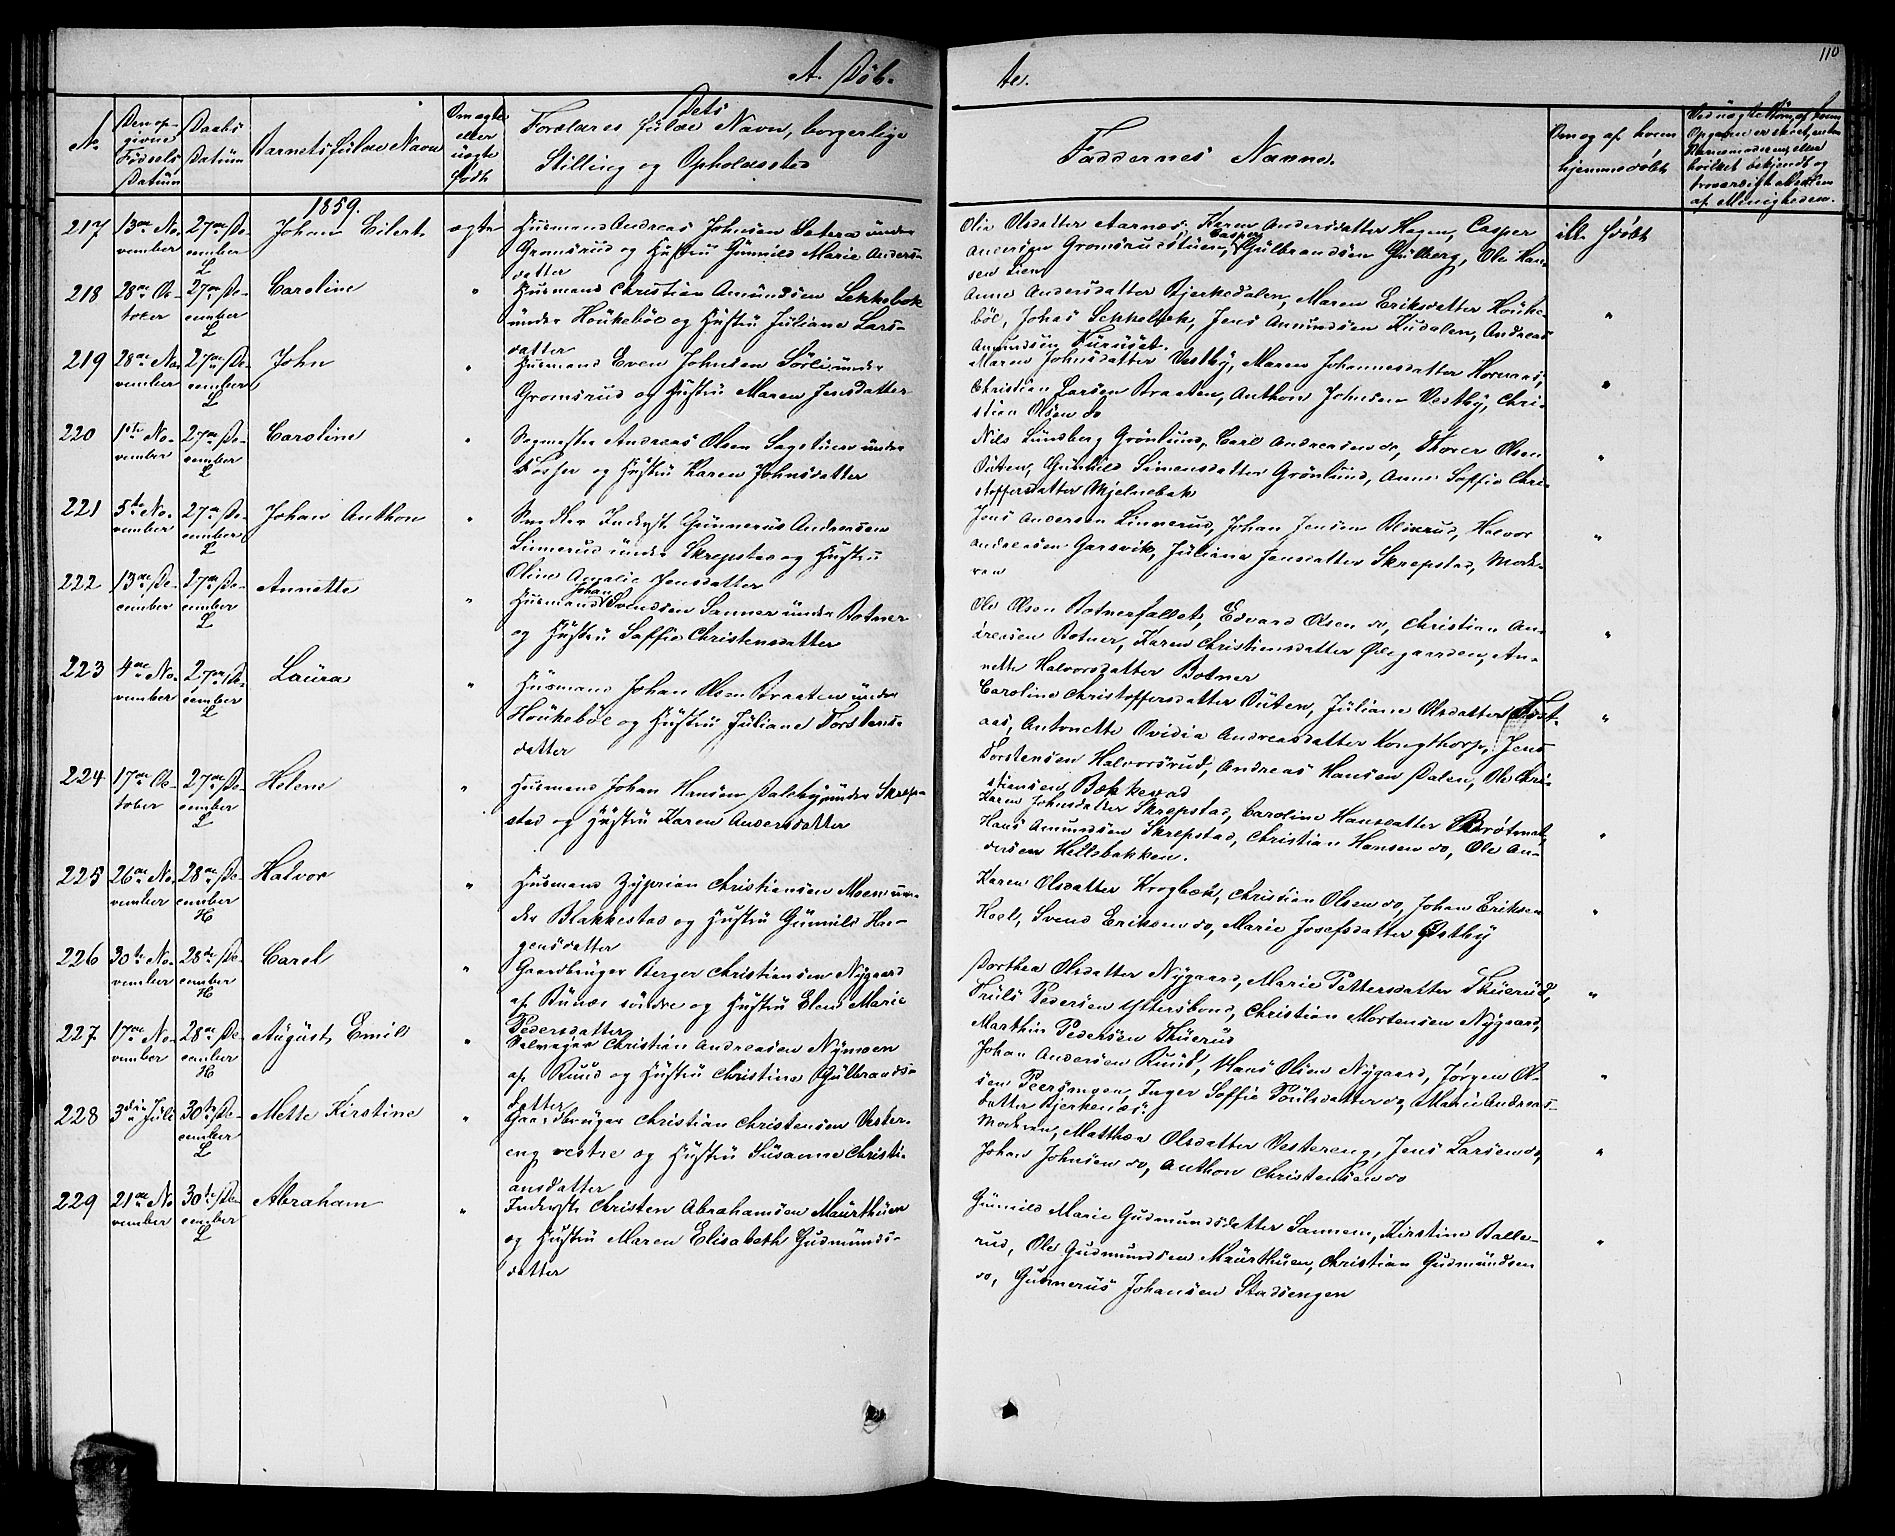 110
A. Døb-
te.
No
Den op-
givne
Fødsels
Datum
Daabs
Datum
Barnets fulde Navn
Om ægte
eller
uægte
født
Dets
Forældres fulde Navn, borgerlige
Stilling og Opholdssted
Faddernes Navne.
Om og af hvem
hjemmedøbt
1859.
217
13de No-
vember
27de De-
cember
L
Johan Eilert
ægte
Husmand Andreas Johnsen Sætera under
Gromsrud og Hustru Gunnild Marie Anders-
datter
Olia Olsdatter Aarnæs, Karen Andersdatter Hagen, Casper
Andersen Gromsrudstuen, Casper Gulbrandsen Gulberg, Ole Han-
sen Lien
ikke hdøbt
218
28de Oc-
tober
27de De-
cember
L
Caroline
"
Husmand Christian Amundsen Sekkebæk
under Houkebøl og Hustru Juliane Lars-
datter
Anne Andersdatter Bjerkedalen, Maren Eriksdatter Houke-
bøl, Johas Sekkebæk, Jens Amundsen Kudalen, Andreas
Amundsen Furuset.
"
219
28de No-
vember
27de De-
cember
L
John
"
Husmand Even Johnsen Sørli under
Gromsrud og Hustru Maren Jensdatter
Maren Johnsdatter Vestby, Maren Johannesdatter Hornaas,
Christian Larsen Braaten, Anthon Johnsen Vestby, Chri-
stian Olsen do
"
220
1ste No-
vember
27de De-
cember
L
Caroline
"
Sagmester Andreas Olsen Sagstuen under
Bøsher og Hustru Karen Johnsdatter
Nils Sundberg Grønlund, Carl Andreasen do, Thorer Olsen
Duten, Gunhild Simensdatter Grønlund, Anne Soffie Chri-
stoffersdatter Mjelnebak
"
221
5te No-
vember
27de De-
cember
L
Johan Anthon
"
Snedker Inderst Gunnerus Andersen
Linnerud under Skrepstad og Hustru
Oline Amalie Jensdatter
Jens Andersen Linnerud, Johan Jensen Blixrud, Halvor
Andreasen Garsvik, Juliane Jensdatter Skrepstad, Mode-
ren
"
222
13de De-
cember
27de De-
cember
L
Annette
"
Husmand Johan Svendsen Sanner under Botner
og Hustru Soffie Christensdatter
Ole Olsen Botnerfallet, Edvard Olsen do, Christian An-
dreasen Botner, Karen Christiansdatter Ødegaarden, An-
nette Halvorsdatter Botner
"
223
4de No-
vember
27de De-
cember
L
Laura
"
Husmand Johan Olsen Braaten under
Houkebøl og Hustru Juliane Torstens-
datter
Caroline Christoffersdatter Duten, Juliane Olsdatter Tost-
aas, Antonette Ovidia Andreasdatter Kongthorp, Jens
Torstensen Halvorsrud, Andreas Hansen Dalen, Ole Chri-
stiansen Bækkevad
"
224
17de Oc-
tober
27de De-
cember
L
Helene
"
Husmand Johan Hansen Dalsby under Skrep-
stad og Hustru Karen Andersdatter
Karen Johnsdatter Skrepstad, Caroline Hansdatter Brøtmet,
Hans Amundsen Skrepstad, Christian Hansen do, Ole An-
dersen Hellebakken.
"
225
26de No-
vember
28de De-
cember
H
Halvor
"
Husmand Zyprian Christiansen Moen un-
der Blakkestad og Hustru Gunnild Ha-
gensdatter
Karen Olsdatter Krogbæk, Christian Olsen do, Johan Eriksen
Hoel, Svend Eriksen do, Marie Josefsdatter Østby
"
226
30te No-
vember
28de De-
cember
H
Carel
"
Gaardbruger Berger Christiansen Nygaard
af Bunæs søndre og Hustru Elen Marie
Pedersdatter
Dorthea Olsdatter Nygaard, Marie Pettersdatter Thuerud,
Truls Pedersen Yttersbond, Christian Mortensen Nygaard,
Marthin Pedersen Thuerud
"
227
17de No-
vember
28de De-
cember
H
August Emil
"
Selveger Christian Andreasen Nymoen
af Ruud og Hustru Christine Gulbrands-
datter
Johan Andersen Ruud, Hans Olsen Nygaard, Jørgen Ol-
sen Peersengen, Inger Soffie Poulsdatter do, Marie Andreas-
datter Bjerkenæs.
"
228
3die Juli
30te De-
cember
L
Mette Kirstine
"
Gaardbruger Christian Christensen Vester-
eng vestre og Hustru Susanne Christi-
ansdatter
Moderen, Matthea Olsdatter Vestereng, Jens Larsen do,
Johan Johnsen do, Anthon Christensen do
"
229
21de No-
vember
30te De-
cember
L
Abraham
"
Inderst Christen Abrahamsen Maurthuen
og Hustru Maren Elisabeth Gudmunds-
datter
Gunnild Marie Gudmundsdatter Sannem, Kirstine Balle-
rud, Ole Gudmundsen Maurthuen, Christian Gudmundsen
do, Gunnerus Johansen Stadsengen
"